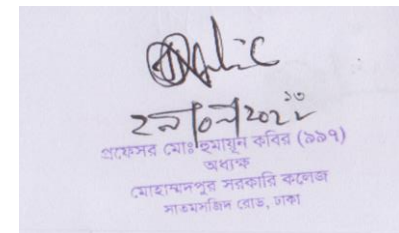 প্রফেসর মোঃ হুমায়ুন কবির (৯৯৭)
অধ্যক্ষ
মোহাম্মদপুর সরকারি কলেজ
সাতমসজিদ রোড, ঢাকা